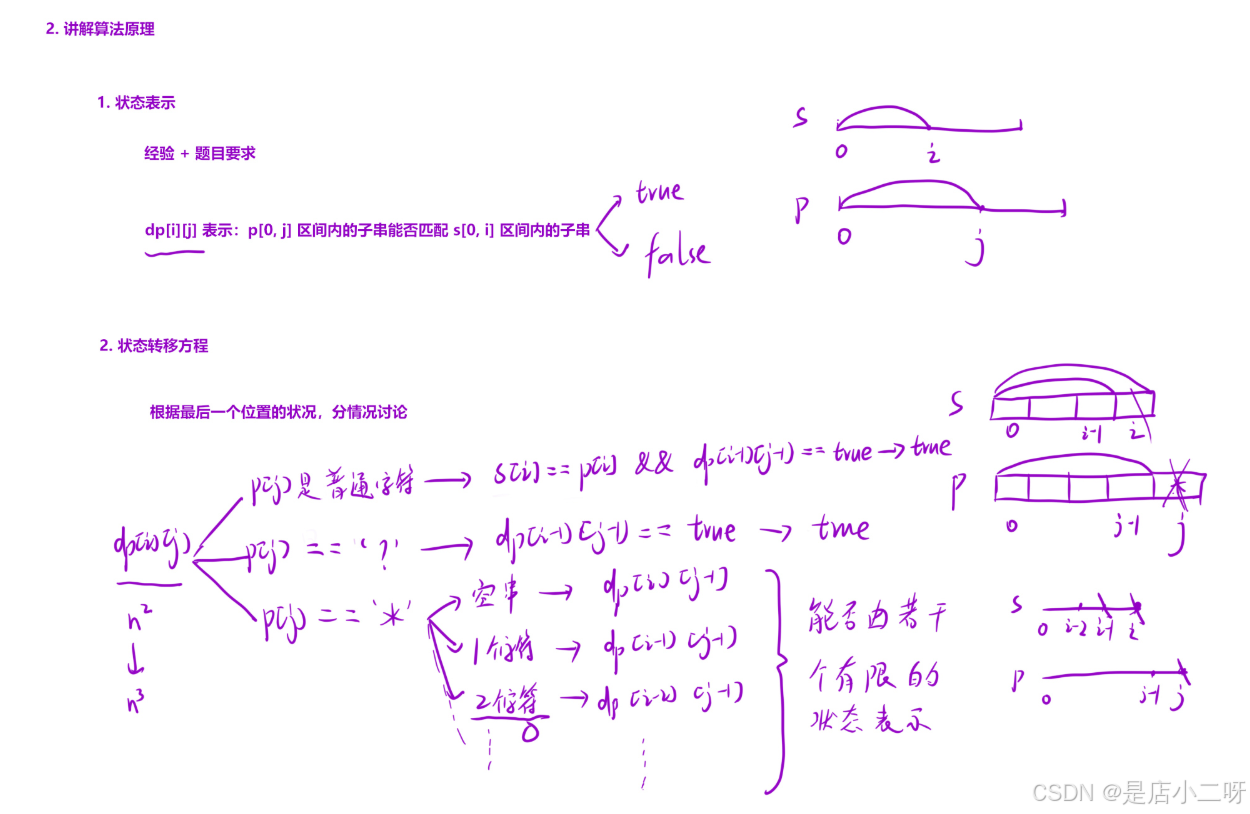 2. 讲解算法原理
1. 状态表示
经验 + 题目要求
dp[i][j] 表示：p[0, j] 区间内的子串能否匹配 s[0, i] 区间内的子串
true
false
s
0 i
p
0 j
2. 状态转移方程
根据最后一个位置的状况，分情况讨论
s
0 i-1 i
p
*
0 j-1 j
dp[i][j]
n²
↓
n³
p[j] 是普通字符 → s[i] == p[i] && dp[i-1][j-1] == true → true
p[j] == '?' → dp[i-1][j-1] == true → true
p[j] == '*'
空串 → dp[i][j-1]
1个字符 → dp[i-1][j-1]
2个字符 → dp[i-2][j-1]
0
能否由若干
个有限的
状态表示
s
0 i-2 i-1 i
p
0 j-1 j
CSDN @是店小二呀